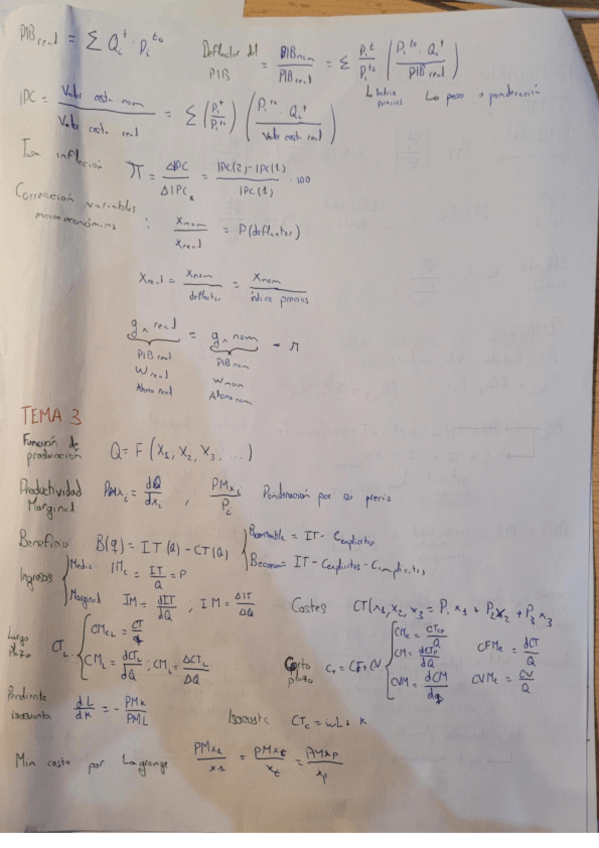 PIB real = Σ Qᵢᵗ · Pᵢᵗ⁰
Deflactor del PIB = PIB nom / PIB real = Σ Pᵢᵗ / Pᵢᵗ⁰ (Pᵢᵗ⁰ · Qᵢᵗ / PIB real)
Índice precios
Lo peso o ponderación
IPC = Valor cesta nom / Valor cesta real = Σ (Pᵢᵗ / Pᵢᵗ⁰) (Pᵢᵗ⁰ · Qᵢᵗ / Valor cesta real)
inflación π = ΔIPC / ΔIPC = IPC(2) - IPC(1) / IPC(1) · 100
Corrección variables macroeconómicas : Xnom / Xreal = P (deflactor)
Xreal = Xnom / deflactor = Xnom / índice precios
gₓ real = gₓ nom - π
PIB real PIB nom
W real W nom
Ahorro real Ahorro nom
TEMA 3
Función de producción Q = F (X₁, X₂, X₃, ...)
Productividad Marginal PMxᵢ = dQ / dxᵢ , PMxᵢ / Pᵢ Ponderación por su precio
Beneficio B(q) = IT(Q) - CT(Q) { Contable = IT - Cexplícitos
Becono = IT - Cexplícitos - Cimplícitos
Ingresos { Medio IMe = IT / Q = P
Marginal IM = dIT / dQ , IM = ΔIT / ΔQ
Costes CT(x₁, x₂, x₃ = P₁ x₁ + P₂ x₂ + P₃ x₃
Largo plazo CTL { CMeL = CT / q
CML = dCTL / dQ ; CML = ΔCTL / ΔQ
Corto plazo CT = CF + CV { CMe = CTcp / Q CFMe = dCT / Q
CM = dCTP / dQ
CVM = dCM / dq CVMe = CV / Q
Pendiente isocuanta dL / dK = - PMK / PML
Isocoste CTc = wL + K
Min coste por Lagrange PMx₁ / x₁ = PMxt / xt = PMxp / xp